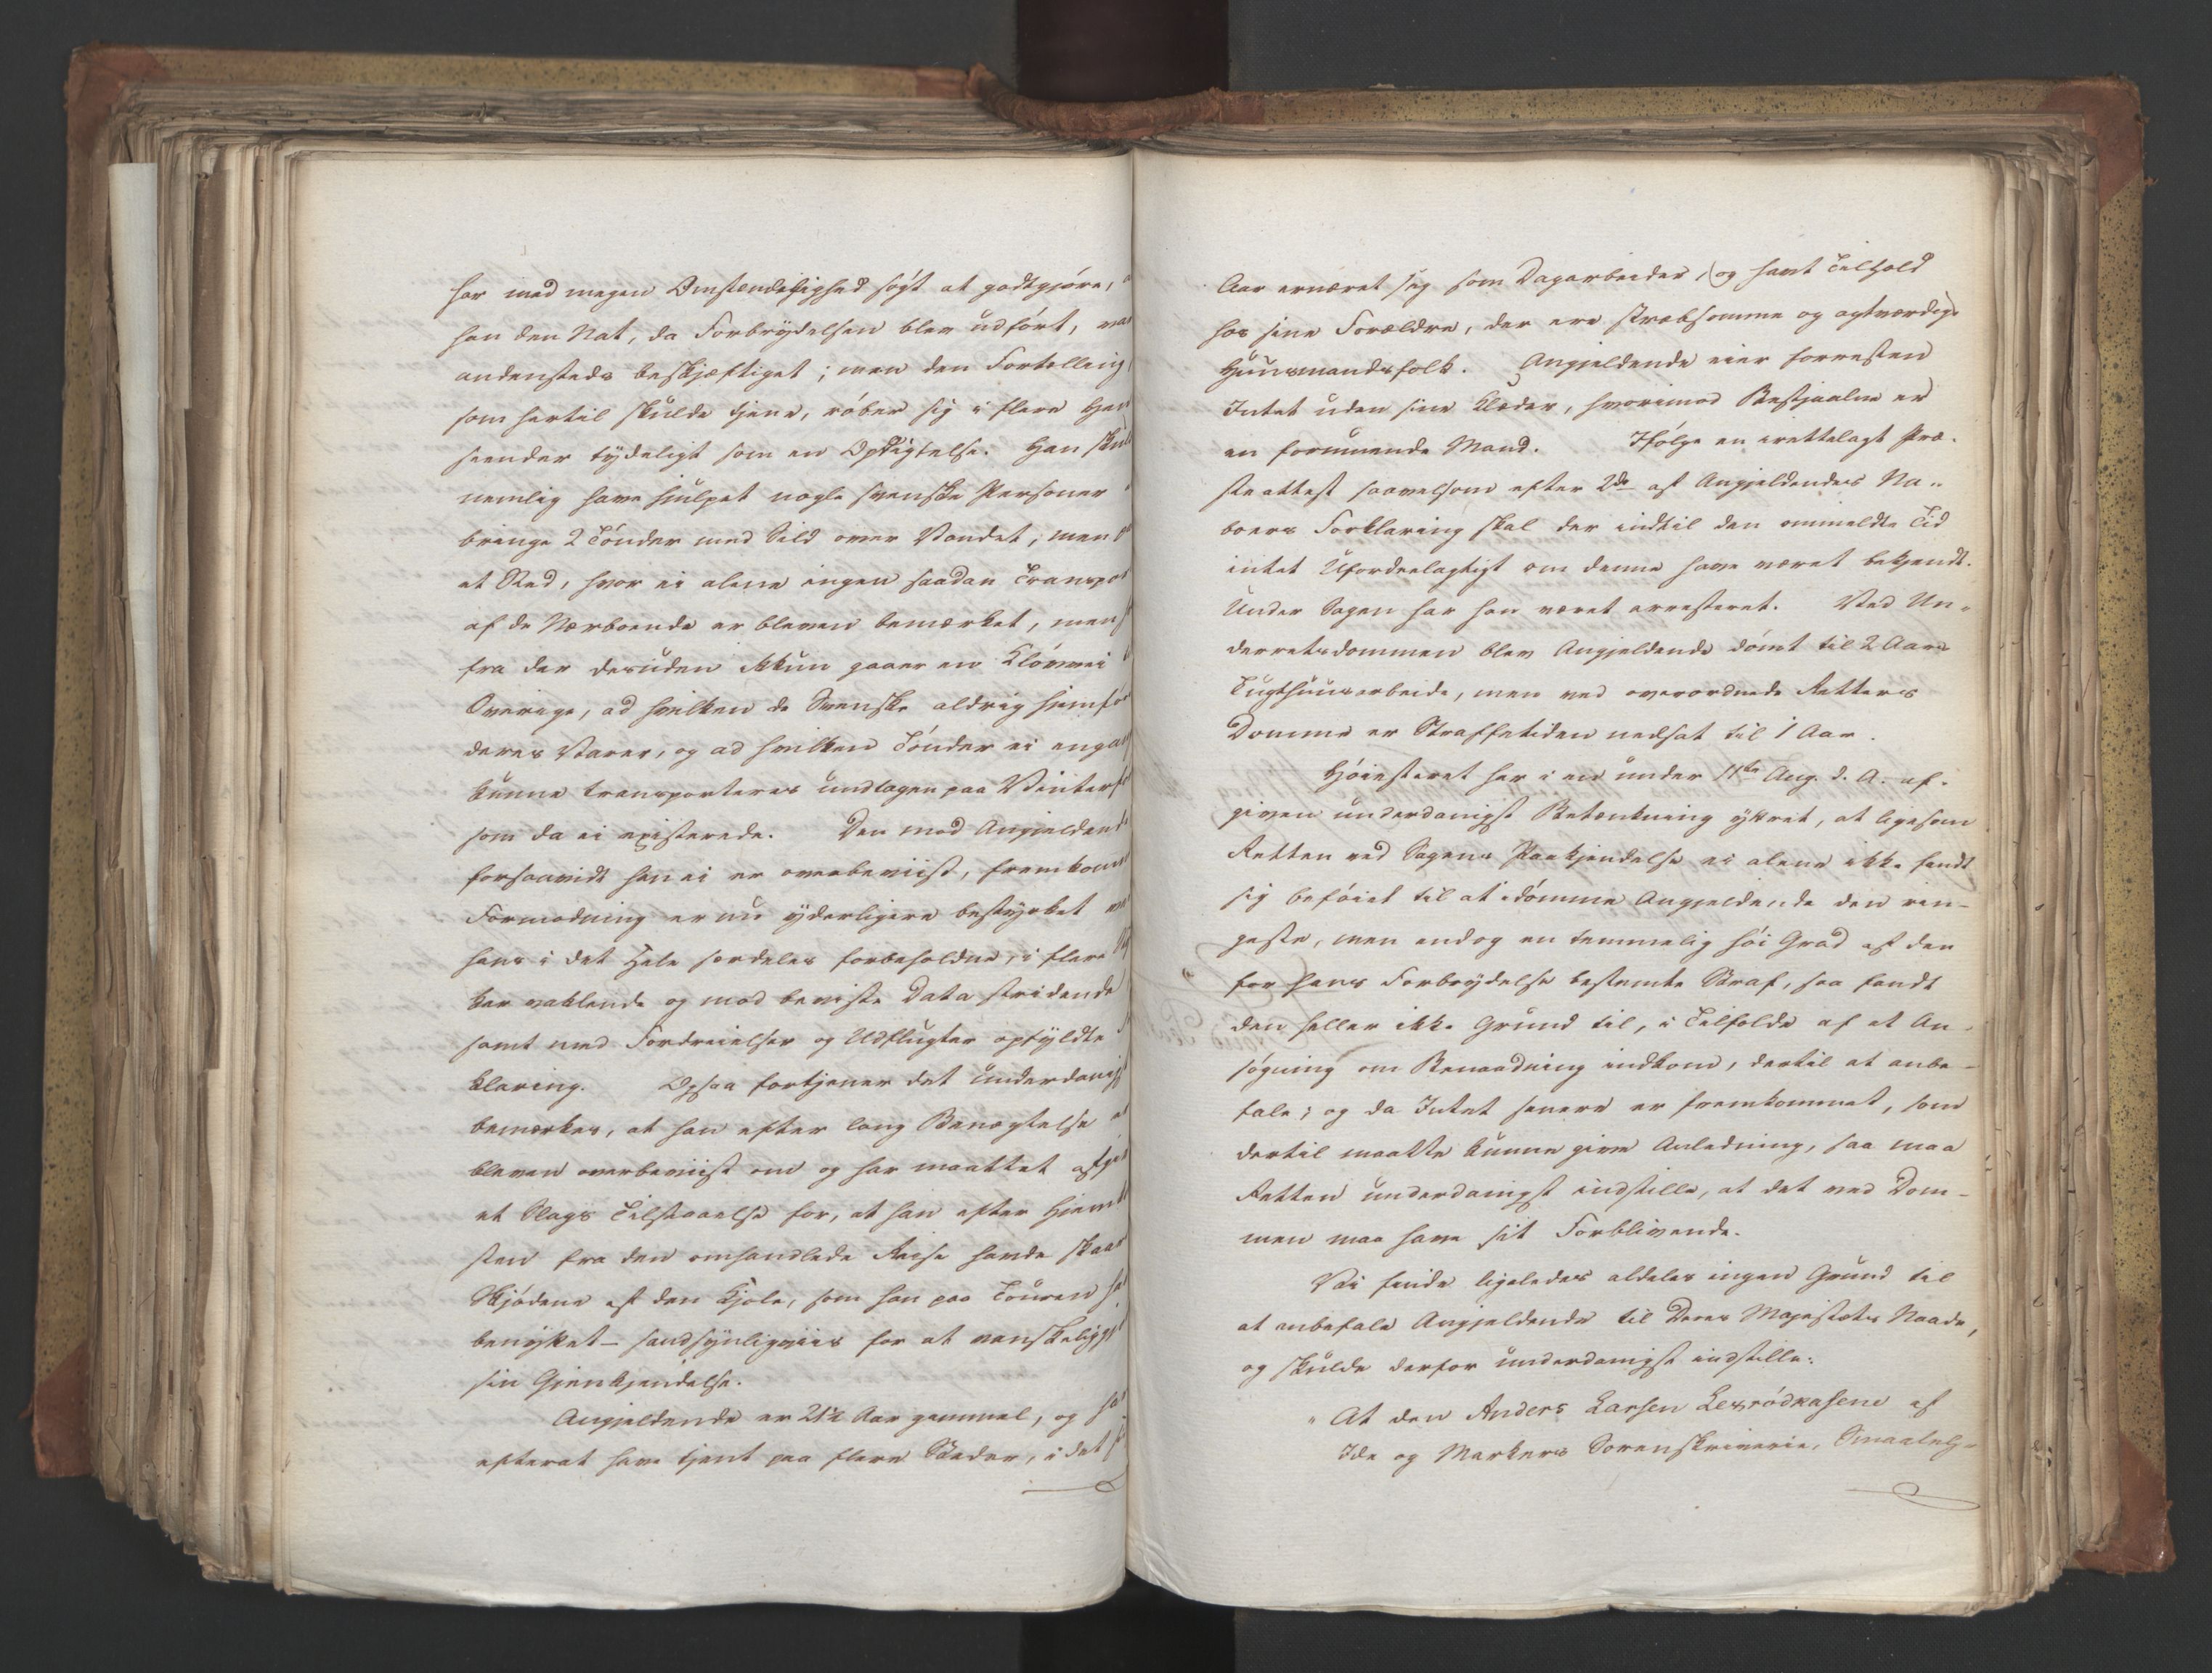 har med megen Omstændelighed søgt at godtgjøre, a
han den Nat, da Forbrydelsen blev udført, var
andensteds beskjæftiget; men den Fortelling,
som hertil skulde tjene, røber sig i flere Hen
seender tydeligt som en Opdigtelse. Han skul
nemlig have hjulpet nogle svenske Personer
bringe 2 Tønder med Sild over Vandet, men
et Sted, hvor ei alene ingen saadan Transpor
af de Nærboende er bleven bemærket, men
fra der desuden ikkun gaaer en Kløvvei
Sverige, ad hvilken de Svenske aldrig hjemfør
deres Varer, og ad hvilken Tønder ei engang
kunne transporteres undtagen paa Vinterf
som da ei existerede. Den mod Angjeldende
forsaavidt han ei er overbeviist, fremkomne
Formodning er nu yderligere bestyrket ved
hans i det Hele særdeles forbeholdne, i flere
ker vaklende og mod beviste Data stridende
samt med Fordreielser og Udflugter opfyldte
klaring. Ogsaa fortjener det underdanigst
bemærkes, at han efter lang Benægtelse
bleven overbeviist om og har maattet afgive
et Slags Tilstaaelse for, at han efter Hjemk
sten fra den omhandlede Reise havde skaar
Skjøderne af den Kjole, som han paa Touren ha
benyttet – sandsynligviis for at vanskeliggjø
sin Gjenkjendelse.
Angjeldende er 21½ Aar gammel, og har
efterat have tjent paa flere Stæder, i det
Aar ernæret sig som Dagarbeider, og havt Tilhold
hos sine Forældre, der ere stræbsomme og agtværdige
Huusmandsfolk. Angjeldende eier forresten
Intet uden sine Klæder, hvorimod Bestjaalne er
en formuende Mand. Ifølge en irettelagt Præ-
steattest saavelsom efter 2de af Angjeldendes Na-
boers Forklaring skal der indtil den ommeldte Tid
intet Ufordeelagtigt om denne have været bekjendt.
Under Sagen har han været arresteret. Ved Un-
derretsdommen blev Angjeldende dømt til 2 Aars
Tugthuusarbeide, men ved overordnede Retters
Domme er Straffetiden nedsat til 1 Aar.
Høiesteret har i en under 11te Aug. d. A. af-
given underdanigst Betænkning yttret, at ligesom
Retten ved Sagens Paakjendelse ei alene ikke fandt
sig beføiet til at idømme Angjeldende den rin-
geste, men endog en temmelig høi Grad af den
for hans Forbrydelse bestemte Straf, saa fandt
den heller ikke Grund til, i Tilfælde af at An-
søgning om Benaadning indkom, dertil at anbe-
fale; og da Intet senere er fremkommet, som
dertil maatte kunne give Anledning, saa maa
Retten underdanigst indstille, at det ved Dom-
men maa have sit Forblivende.
Vi finde ligeledes aldeles ingen Grund til
at anbefale Angjeldende til Deres Majestæts Naade,
og skulde derfor underdanigst indstille:
"At den Anders Larsen Lervødkasene af
Ide og Markers Sorenskriverie, Smaaleh-